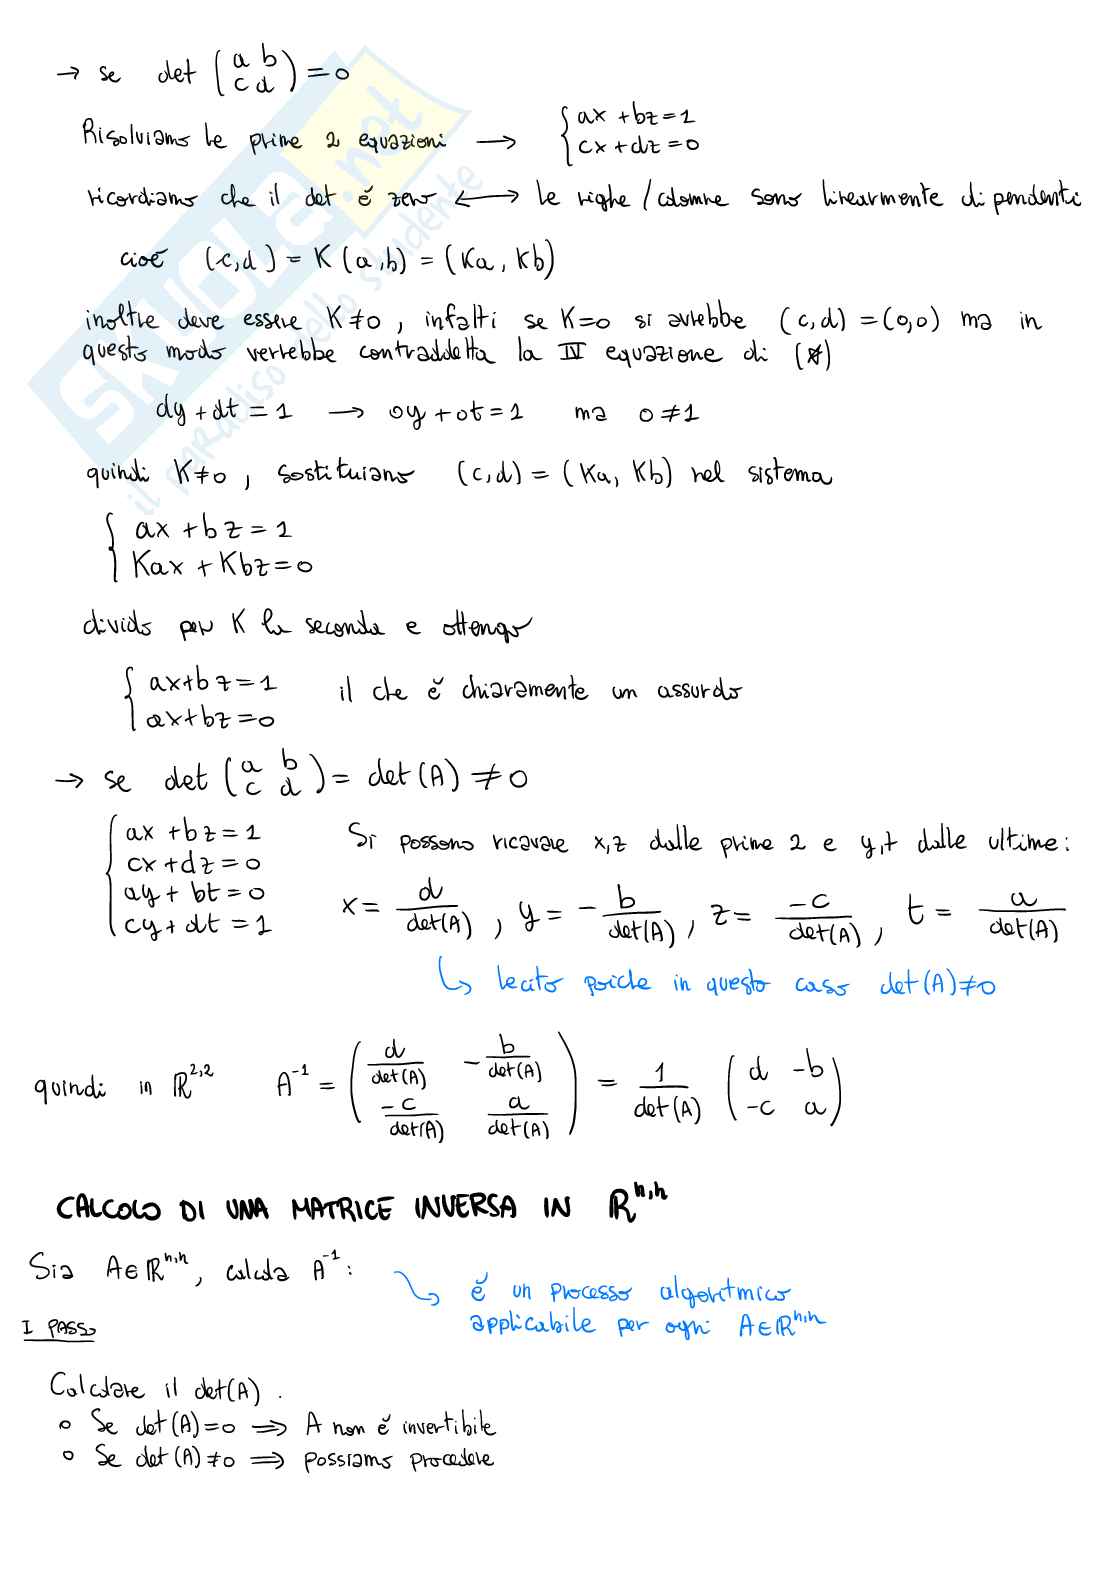 → se det (a b
c d) = 0
Risolviamo le prime 2 equazioni → { ax + bz = 1
cx + dz = 0
ricordiamo che il det è zero ⟷ le righe / colonne sono linearmente dipendenti
cioè (c,d) = K (a,b) = (Ka, Kb)
inoltre deve essere K≠0, infatti se K=0 si avrebbe (c,d) = (0,0) ma in
questo modo verrebbe contraddetta la IV equazione di (*)
dy + dt = 1 → 0y + 0t = 1 ma 0 ≠ 1
quindi K≠0, sostituiamo (c,d) = (Ka, Kb) nel sistema
{ ax + bz = 1
Kax + Kbz = 0
divido per K la seconda e ottengo
{ ax + bz = 1
ax + bz = 0 il che è chiaramente un assurdo
→ se det (a b
c d) = det(A) ≠ 0
{ ax + bz = 1
cx + dz = 0
ay + bt = 0
cy + dt = 1
Si possono ricavare x,z dalle prime 2 e y,t dalle ultime:
x = d/det(A), y = - b/det(A), z = -c/det(A), t = a/det(A)
↳ lecito poiché in questo caso det(A)≠0
quindi in ℝ^2,2 A^-1 = ( d/det(A) - b/det(A)
-c/det(A) a/det(A) ) = 1/det(A) ( d -b
-c a )
CALCOLO DI UNA MATRICE INVERSA IN ℝ^n,n
Sia A∈ℝ^n,n, calcola A^-1:
↳ è un processo algoritmico
applicabile per ogni A∈ℝ^n,n
I PASSO
Calcolare il det(A).
o Se det(A)=0 ⟹ A non è invertibile
o Se det(A)≠0 ⟹ possiamo procedere
SKUOLA.net
il paradiso dello studente